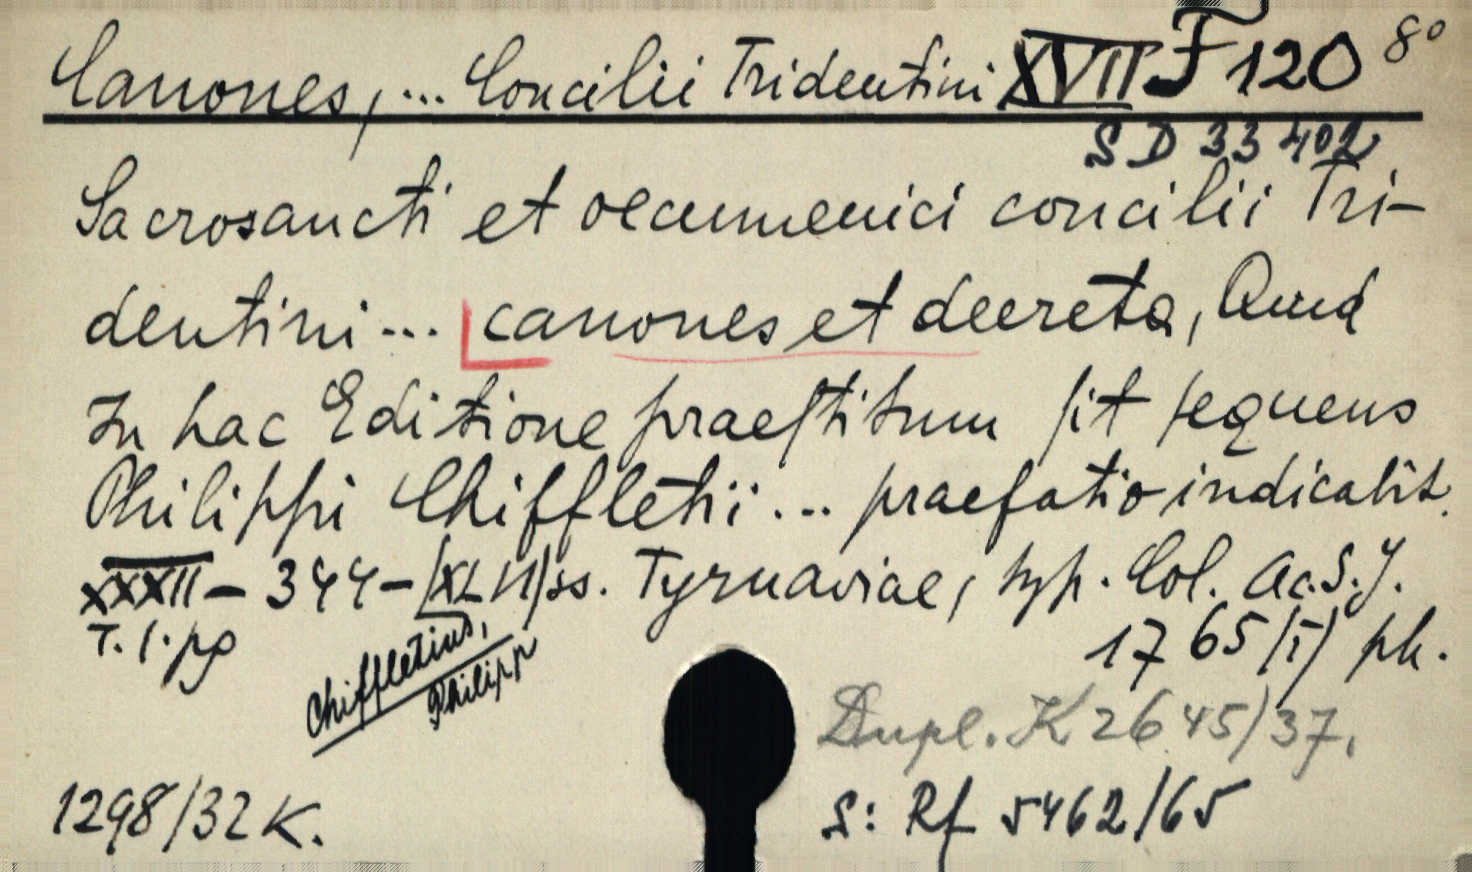 Canones, ... Concilii Tridentini XVII F 120 8°
SD 33 402
Sacrosancti et oecumenici concilii Tri-
dentini ... canones et decreta, Quid
In hac Editione praestitum sit sequens
Philippi Chiffletii ... praefatio indicabit.
XXXII - 344 - [XLII] ss. Tyrnaviae, typ. Col. Ac. S. J.
T. I. pg 1765 /I/ ph.
Chiffletius,
Philipp
Dupl. K 2645/37.
1298/32 K. S: Rf 5462/65